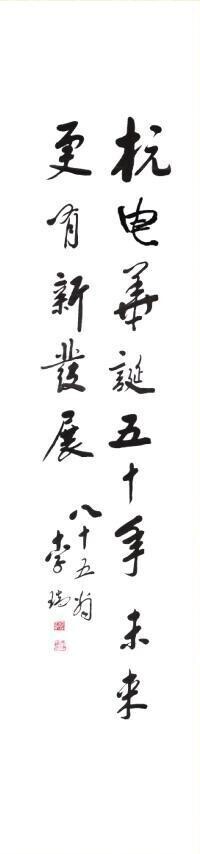 杭电華誕五十年未来
更有新發展
八十五翁
李瑞